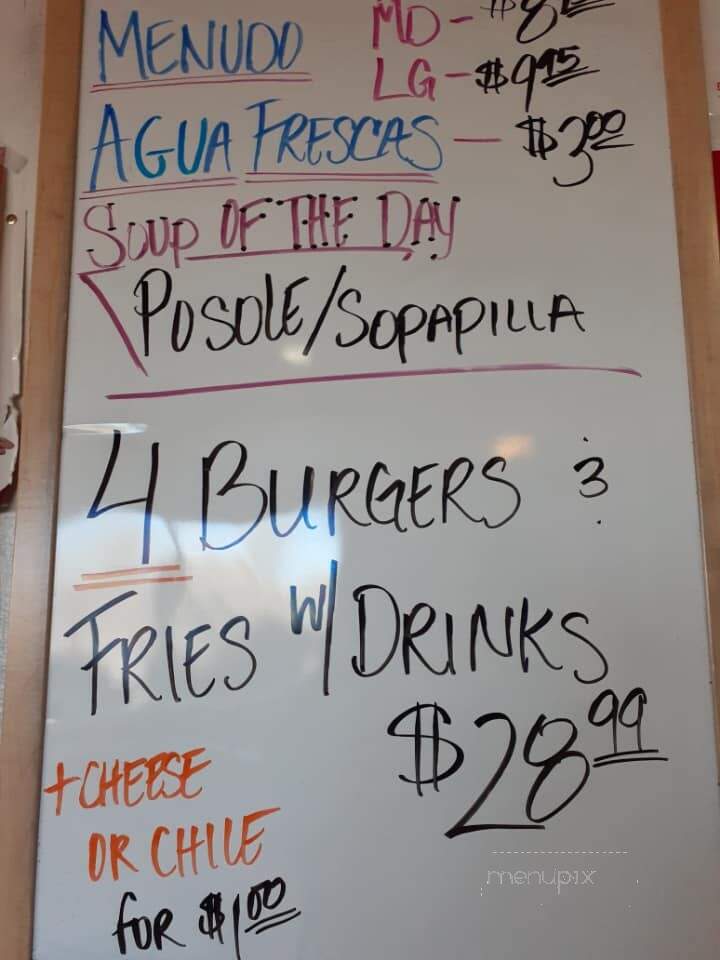 MENUDO MD - $8
LG - $9.95
AGUA FRESCAS - $3.00
SOUP OF THE DAY
POSOLE/SOPAPILLA
4 BURGERS &
FRIES W/ DRINKS
$28.99
+ CHEESE
OR CHILE
FOR $1.00
menupix